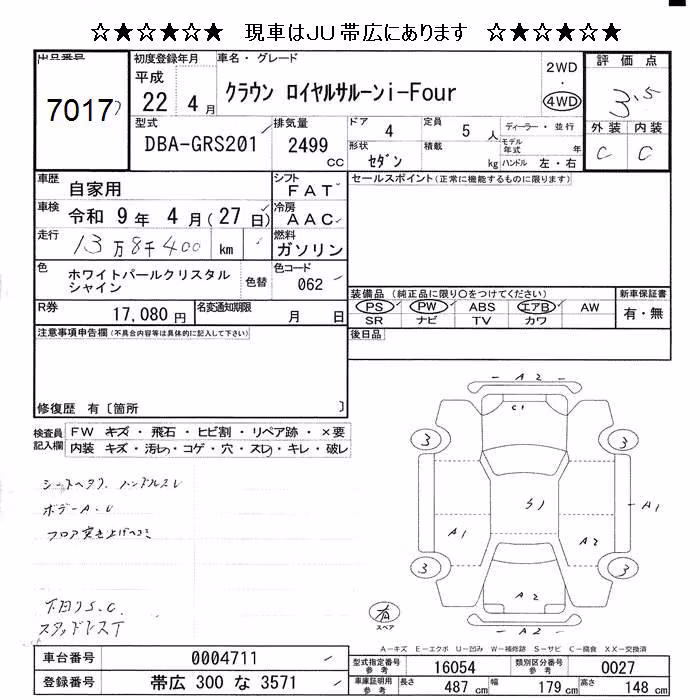 ☆★☆★☆ 現車はＪＵ帯広にあります ☆★☆★☆
出品番号
7017
初度登録年月
平成
22 4 月
車名・グレード
クラウン ロイヤルサルーンi-Four
2WD
・
4WD
評価点
3.5
外装 内装
C C
型式
DBA-GRS201
排気量
2499
CC
ドア
4
定員
5 人
形状
セダン
積載
kg
ディーラー・並行
モデル年式 年
ハンドル 左・右
車歴
自家用
シフト
ＦＡＴ
車検
令和 9 年 4 月(27 日)
冷房
ＡＡＣ
走行
13万8千400 km
燃料
ガソリン
色
ホワイトパールクリスタル
シャイン
色替
色コード
062
Ｒ券
17,080 円
名変通知期限
月 日
セールスポイント(正常に機能するものに限ります)
装備品 (純正品に限り○をつけてください)
PS PW ABS エアB AW
SR ナビ TV カワ
新車保証書
有・無
後日品
注意事項申告欄(不具合内容等は具体的に記入して下さい)
修復歴 有〔箇所 〕
検査員
記入欄
ＦＷ キズ・飛石・ヒビ割・リペア跡・×要
内装 キズ・汚レ・コゲ・穴・スレ・キレ・破レ
シートヘタリ ハンドルスレ
ボデーA.U
フロア突き上げヘコミ
下回りS.C
スタッドレスT
A2
C1
3
3
S1
A1
A1
A2
3
3
A2
A2
有
スペア
A－キズ E－エクボ U－凹み W－補修跡 S－サビ C－腐食 XX－交換済
車台番号
0004711
登録番号
帯広 300 な 3571
型式指定番号
参考
16054
類別区分番号
参考
0027
車庫証明用
参考
長さ
487 cm
幅
179 cm
高さ
148 cm